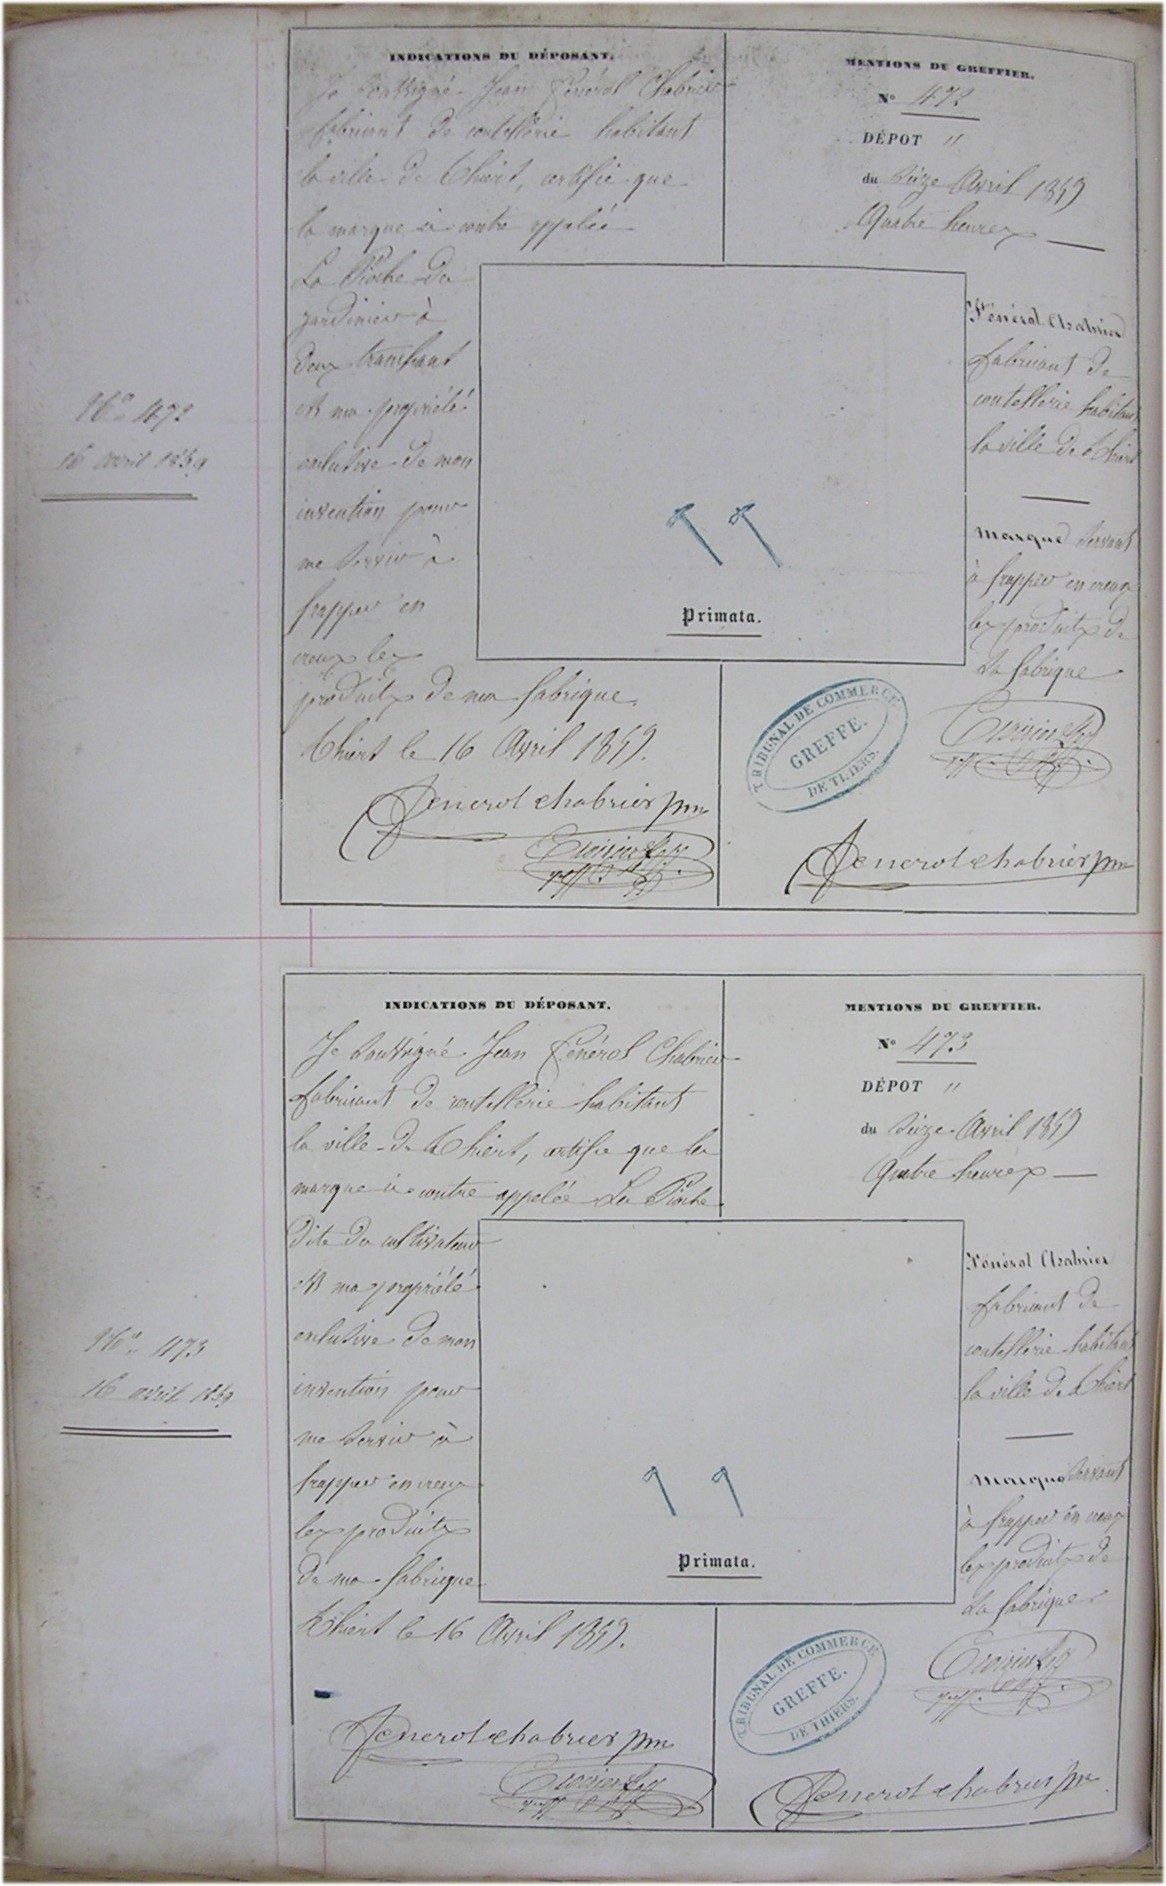 INDICATIONS DU DÉPOSANT.
Je soussigné Jean Fénérol Chabrier
fabricant de coutellerie habitant
la ville de Thiers, certifie que
la marque ci contre appelée
La Pioche du
jardinier à
deux tranchant
est ma propriété
exclusive de mon
invention pour
me servir à
frapper en
creux les
produits de ma fabrique
Thiers le 16 Avril 1859.
fenerol chabrier
MENTIONS DU GREFFIER.
N° 472
DÉPOT "
du Seize Avril 1859
Quatre heures
Fénérol Chabrier
fabricant de
coutellerie habitant
la ville de Thiers
Marque servant
à frapper en creux
les produits de
sa fabrique
Primata.
TRIBUNAL DE COMMERCE
GREFFE.
DE THIERS.
fenerol chabrier
N° 472
16 avril 1859
INDICATIONS DU DÉPOSANT.
Je soussigné Jean Fénérol Chabrier
fabricant de coutellerie habitant
la ville de Thiers, certifie que la
marque ci contre appelée La Pioche
dite du cultivateur
est ma propriété
exclusive de mon
invention pour
me servir à
frapper en creux
les produits
de ma fabrique
Thiers le 16 Avril 1859.
fenerol chabrier
MENTIONS DU GREFFIER.
N° 473
DÉPOT "
du Seize Avril 1859
Quatre heures
Fénérol Chabrier
fabricant de
coutellerie habitant
la ville de Thiers
Marque servant
à frapper en creux
les produits de
sa fabrique
Primata.
TRIBUNAL DE COMMERCE
GREFFE.
DE THIERS.
fenerol chabrier
N° 473
16 avril 1859